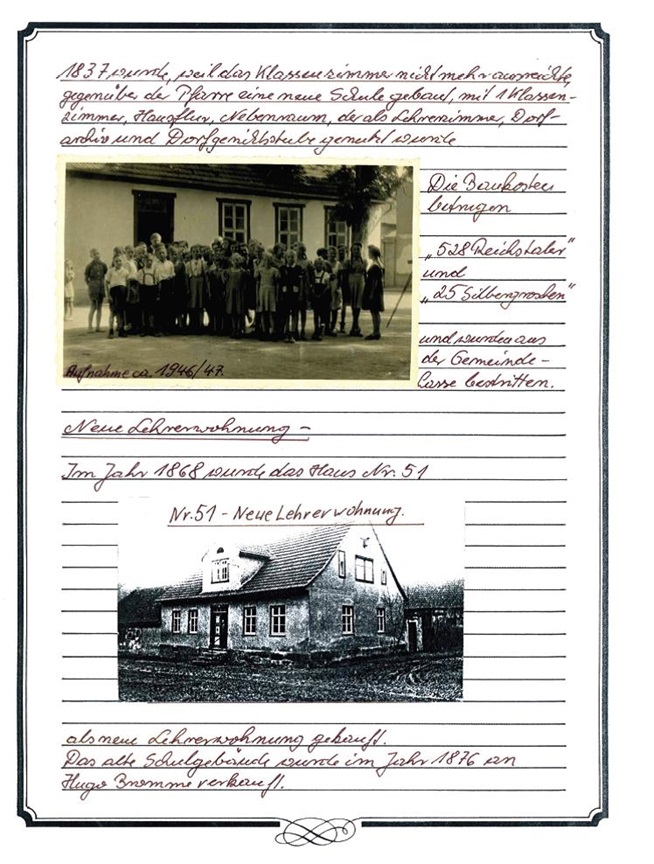 1837 wurde, weil das Klassenzimmer nicht mehr ausreichte,
gegenüber der Pfarre eine neue Schule gebaut, mit 1 Klassen-
zimmer, Hausflur, Nebenraum, der als Lehrerzimmer, Dorf-
archiv und Dorfgerichtsstube genutzt wurde
Die Baukosten
betrugen
„528 Reichstaler"
und
„25 Silbergroschen"
und wurden aus
der Gemeinde-
Casse bestritten.
Aufnahme ca. 1946/47.
Neue Lehrerwohnung -
Im Jahr 1868 wurde das Haus Nr. 51
Nr. 51 - Neue Lehrerwohnung.
als neue Lehrerwohnung gekauft.
Das alte Schulgebäude wurde im Jahr 1876 an
Hugo Bromme verkauft.